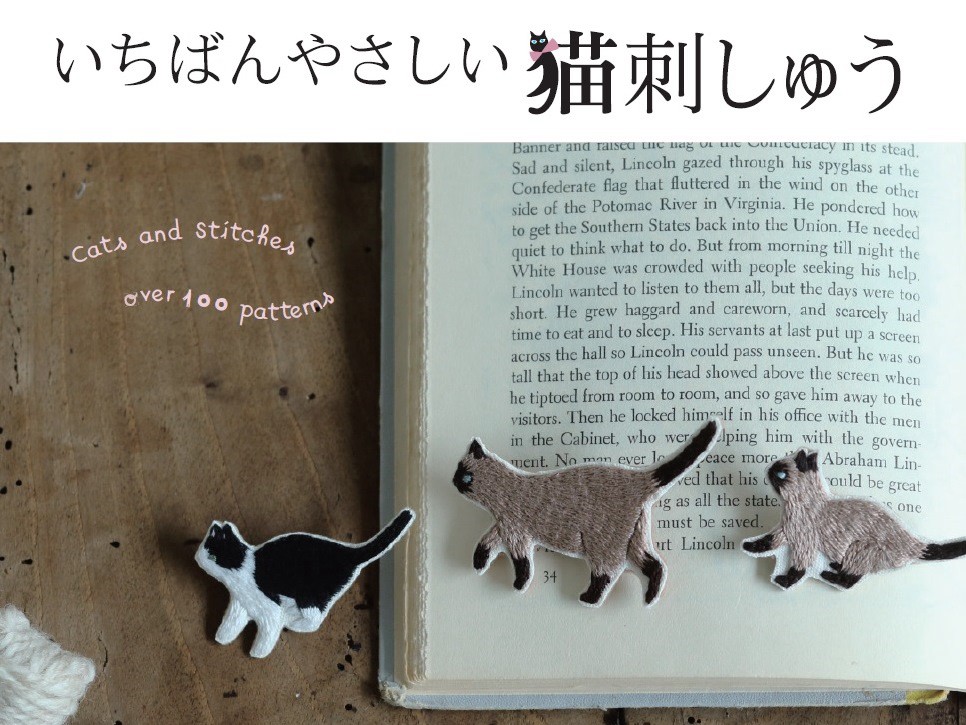 いちばんやさしい猫刺しゅう
cats and stitches
over 100 patterns
Banner and raised the flag of the Confederacy in its stead.
Sad and silent, Lincoln gazed through his spyglass at the
Confederate flag that fluttered in the wind on the other
side of the Potomac River in Virginia. He pondered how
to get the Southern States back into the Union. He needed
quiet to think what to do. But from morning till night the
White House was crowded with people seeking his help.
Lincoln wanted to listen to them all, but the days were too
short. He grew haggard and careworn, and scarcely had
time to eat and to sleep. His servants at last put up a screen
across the hall so Lincoln could pass unseen. But he was so
tall that the top of his head showed above the screen when
he tiptoed from room to room, and so gave him away to the
visitors. Then he locked himself in his office with the men
in the Cabinet, who were helping him with the govern-
ment. No man ever peace more Abraham Lin-
ved that his could be great
ng as all the state. one
must be saved.
urt Lincoln
34